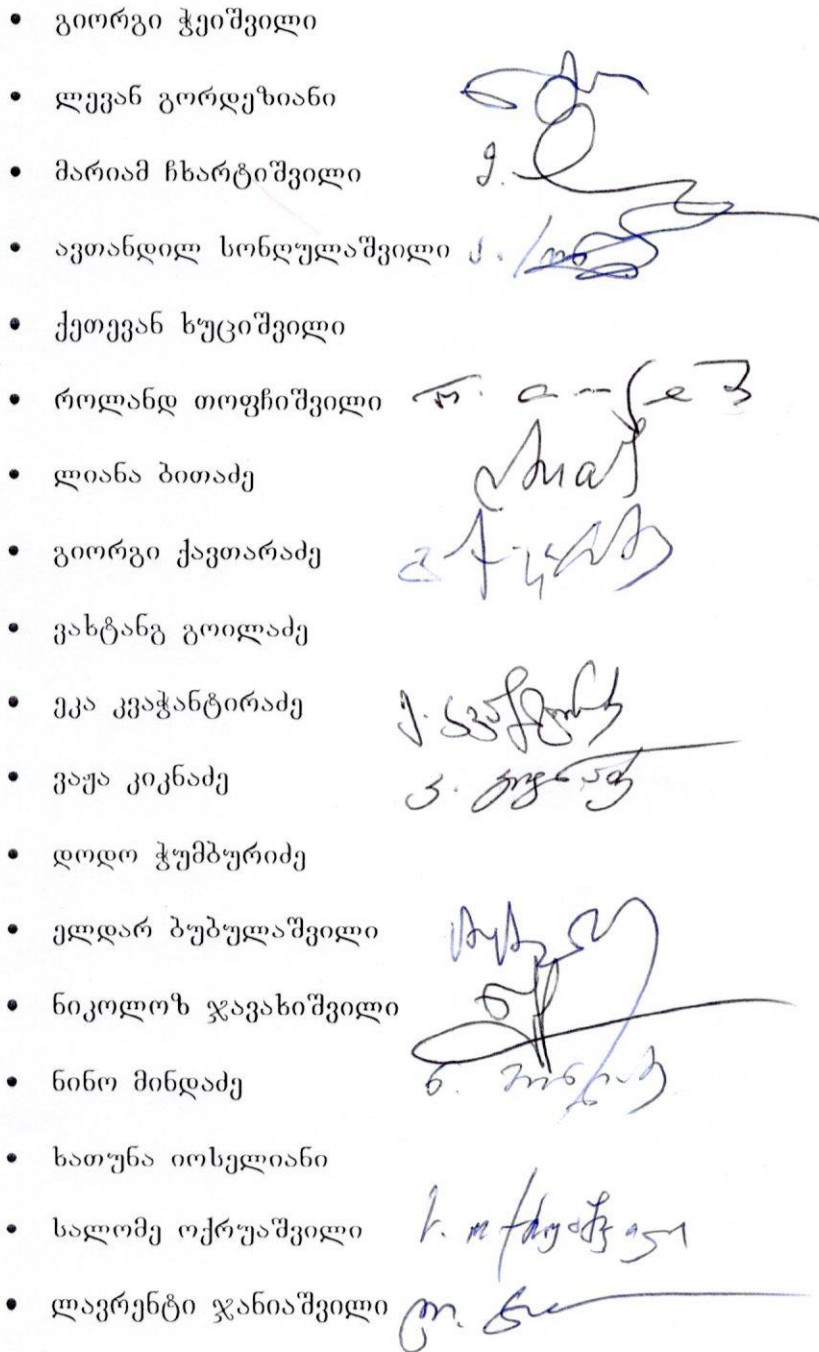 • გიორგი ჭეიშვილი
• ლევან გორდეზიანი
• მარიამ ჩხარტიშვილი
• ავთანდილ სონღულაშვილი
• ქეთევან ხუციშვილი
• როლანდ თოფჩიშვილი
• ლიანა ბითაძე
• გიორგი ქავთარაძე
• ვახტანგ გოილაძე
• ეკა კვაჭანტირაძე
• ვაჟა კიკნაძე ვ. კიკნაძე
• დოდო ჭუმბურიძე
• ელდარ ბუბულაშვილი
• ნიკოლოზ ჯავახიშვილი
• ნინო მინდაძე ნ. მინდაძე
• ხათუნა იოსელიანი
• სალომე ოქრუაშვილი
• ლავრენტი ჯანიაშვილი